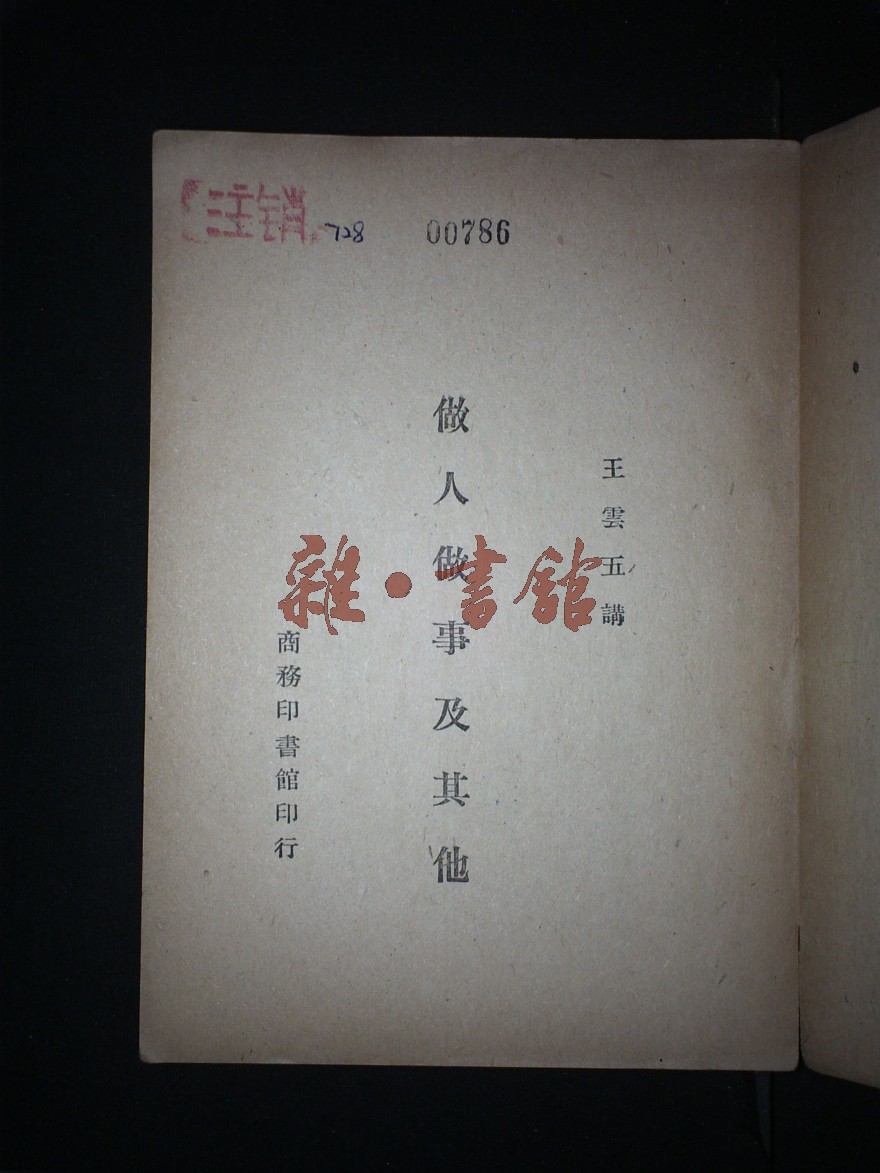 注销
728
00786
王雲五講
做人做事及其他
商務印書館印行
雜·書館